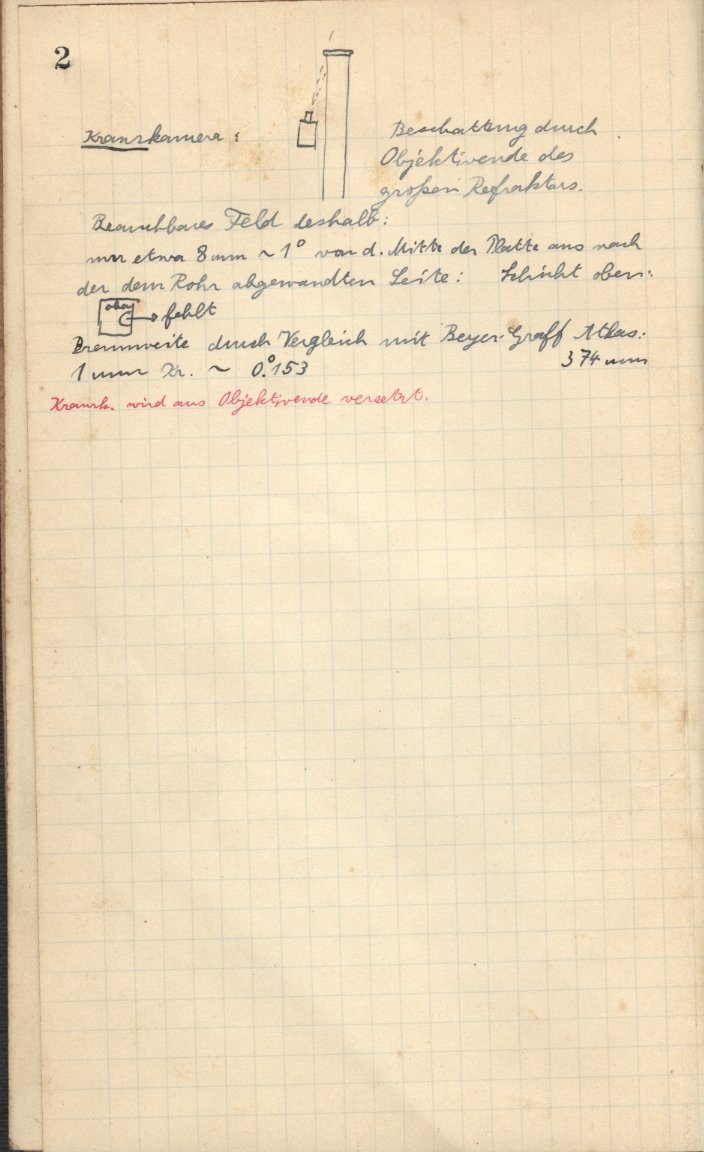 2
Kranzkamera:
Beschattung durch
Objektivende des
großen Refraktors.
Brauchbares Feld deshalb:
nur etwa 8 mm ~ 1° von d. Mitte der Platte aus nach
der dem Rohr abgewandten Seite: Schicht oben:
oben
→ fehlt
Brennweite durch Vergleich mit Beyer-Graff Atlas:
1 mm Kr. ~ 0°.153 374 mm
Krank. wird ans Objektivende versetzt.